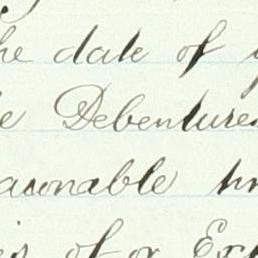 he date of
e Debentures
asonable
of or Ex